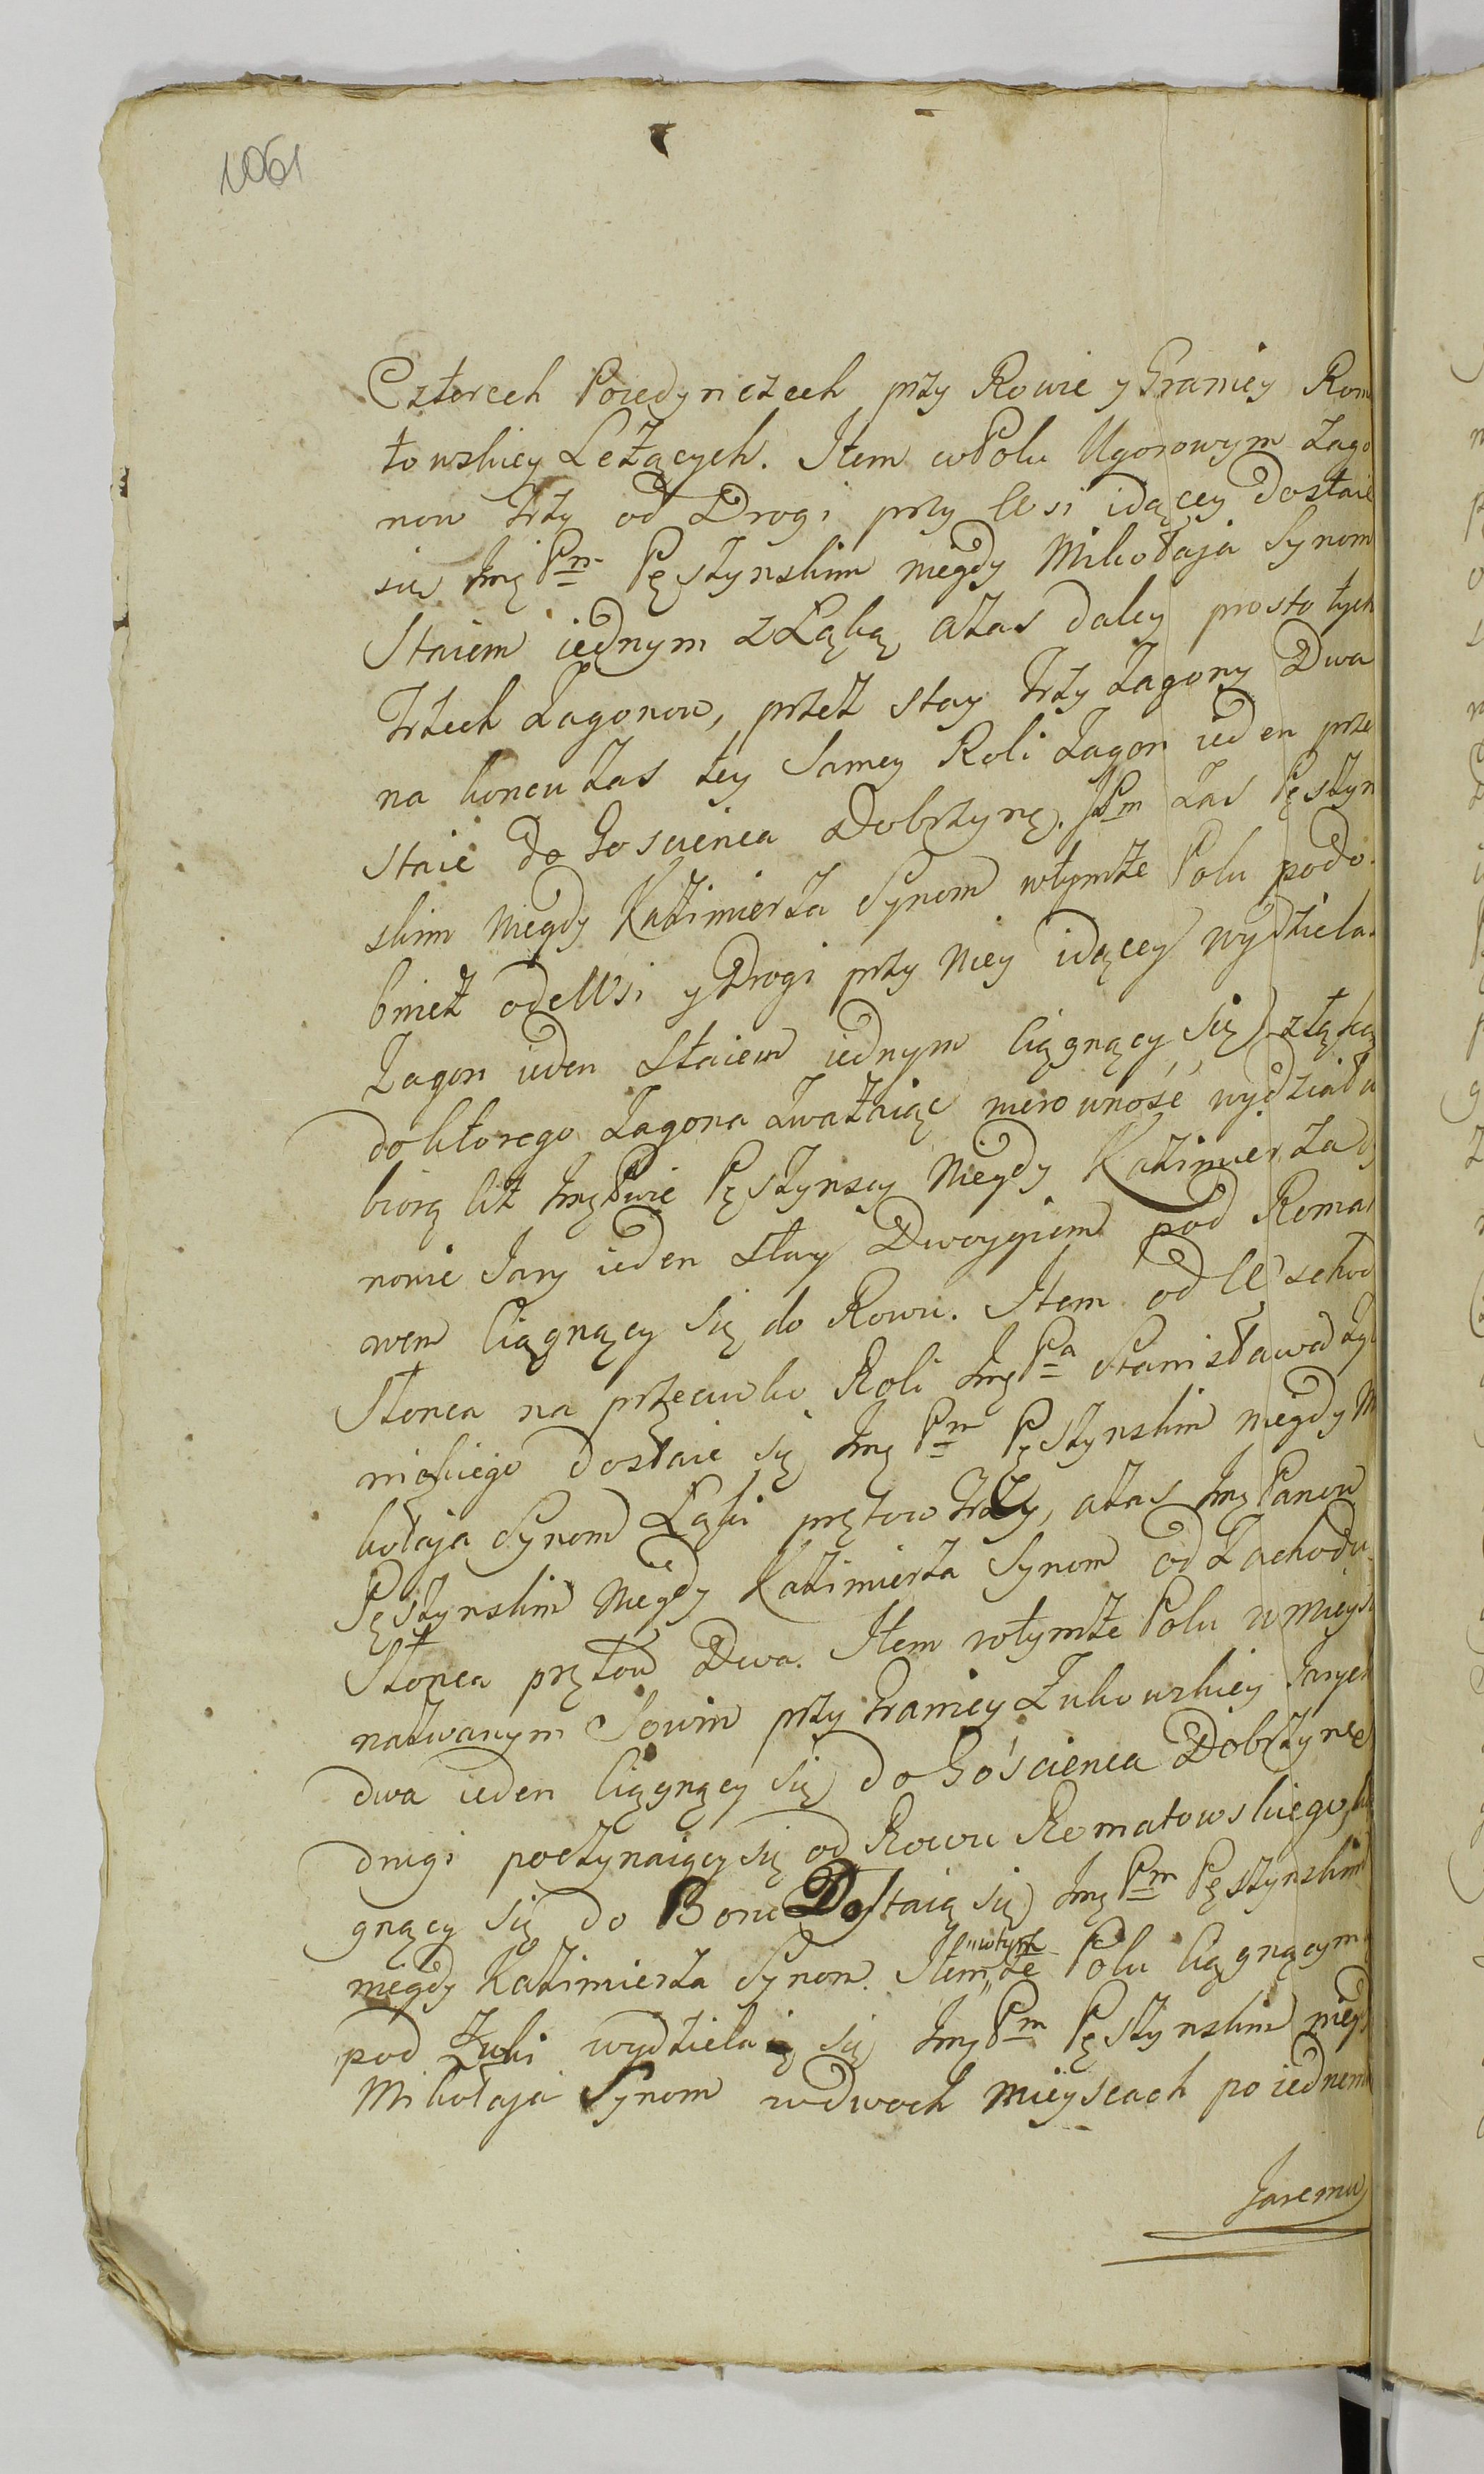 1061
Czterech Poiedynczech przy Rowie y Granicy Rom
towskiey Leżących. Item w Polu Ugorowym Zago
now trzy od Drogi przy Wsi idącey dostaie
się Jmę Pm Pęstynskim niegdy Mikołaja Synom
Staiem iednym z Łąką, azas daley prosto tych
trzech Zagonow, przez stay trzy Zagony Dwa
na koncu zas tey Samey Roli Zagon ieden prze
staie do Goscienca Dobrzynę. JPm zas Pęstyn
skim niegdy Kazimierza Synom wtymże Polu podo
bniez odeWsi y Drogi przy niey idącey wydziela
Zagon ieden Staiem iednym ciągnący się z łąką
do ktorego Zagona Zważaiąc nierowność wydziału
biorą liż Jmę Pwie Pęstynscy Niegdy Kazimierza
nowie Jary ieden Stay Dwoygiem pod Romat
wem ciągnący się do Rowu. Item od Wschod
Słonca na przeciwko Roli Jmę Pa Stanisława
nickiego dostaie się Jmę Pm Pęstynskim niegdy Mi
kołaja Synom Łąki prętow trzy, azas Jmę Panow
Pęstynskim Niegdy Kazimierza Synom od Zachodu
Słonca prętow Dwa. Item wtymże Polu w mieys
nazwanym Sowin przy Granicy Żukowskiey Jarych
dwa ieden ciągnący się do Gościenca Dobrzynę
drugi poczynaiący się od Rowu Romatowskiego
gnący się do Boru Dostaią się Jmę Pm Pęstynskim
niegdy Kazimierza Synom. Item "wtym" że Polu ciągnącym
pod Żuki wydzielaią się Jmę Pm Pęstynskim niegd
Mikołaja Synom w dwoch mieyscach po iednem
Jaremu